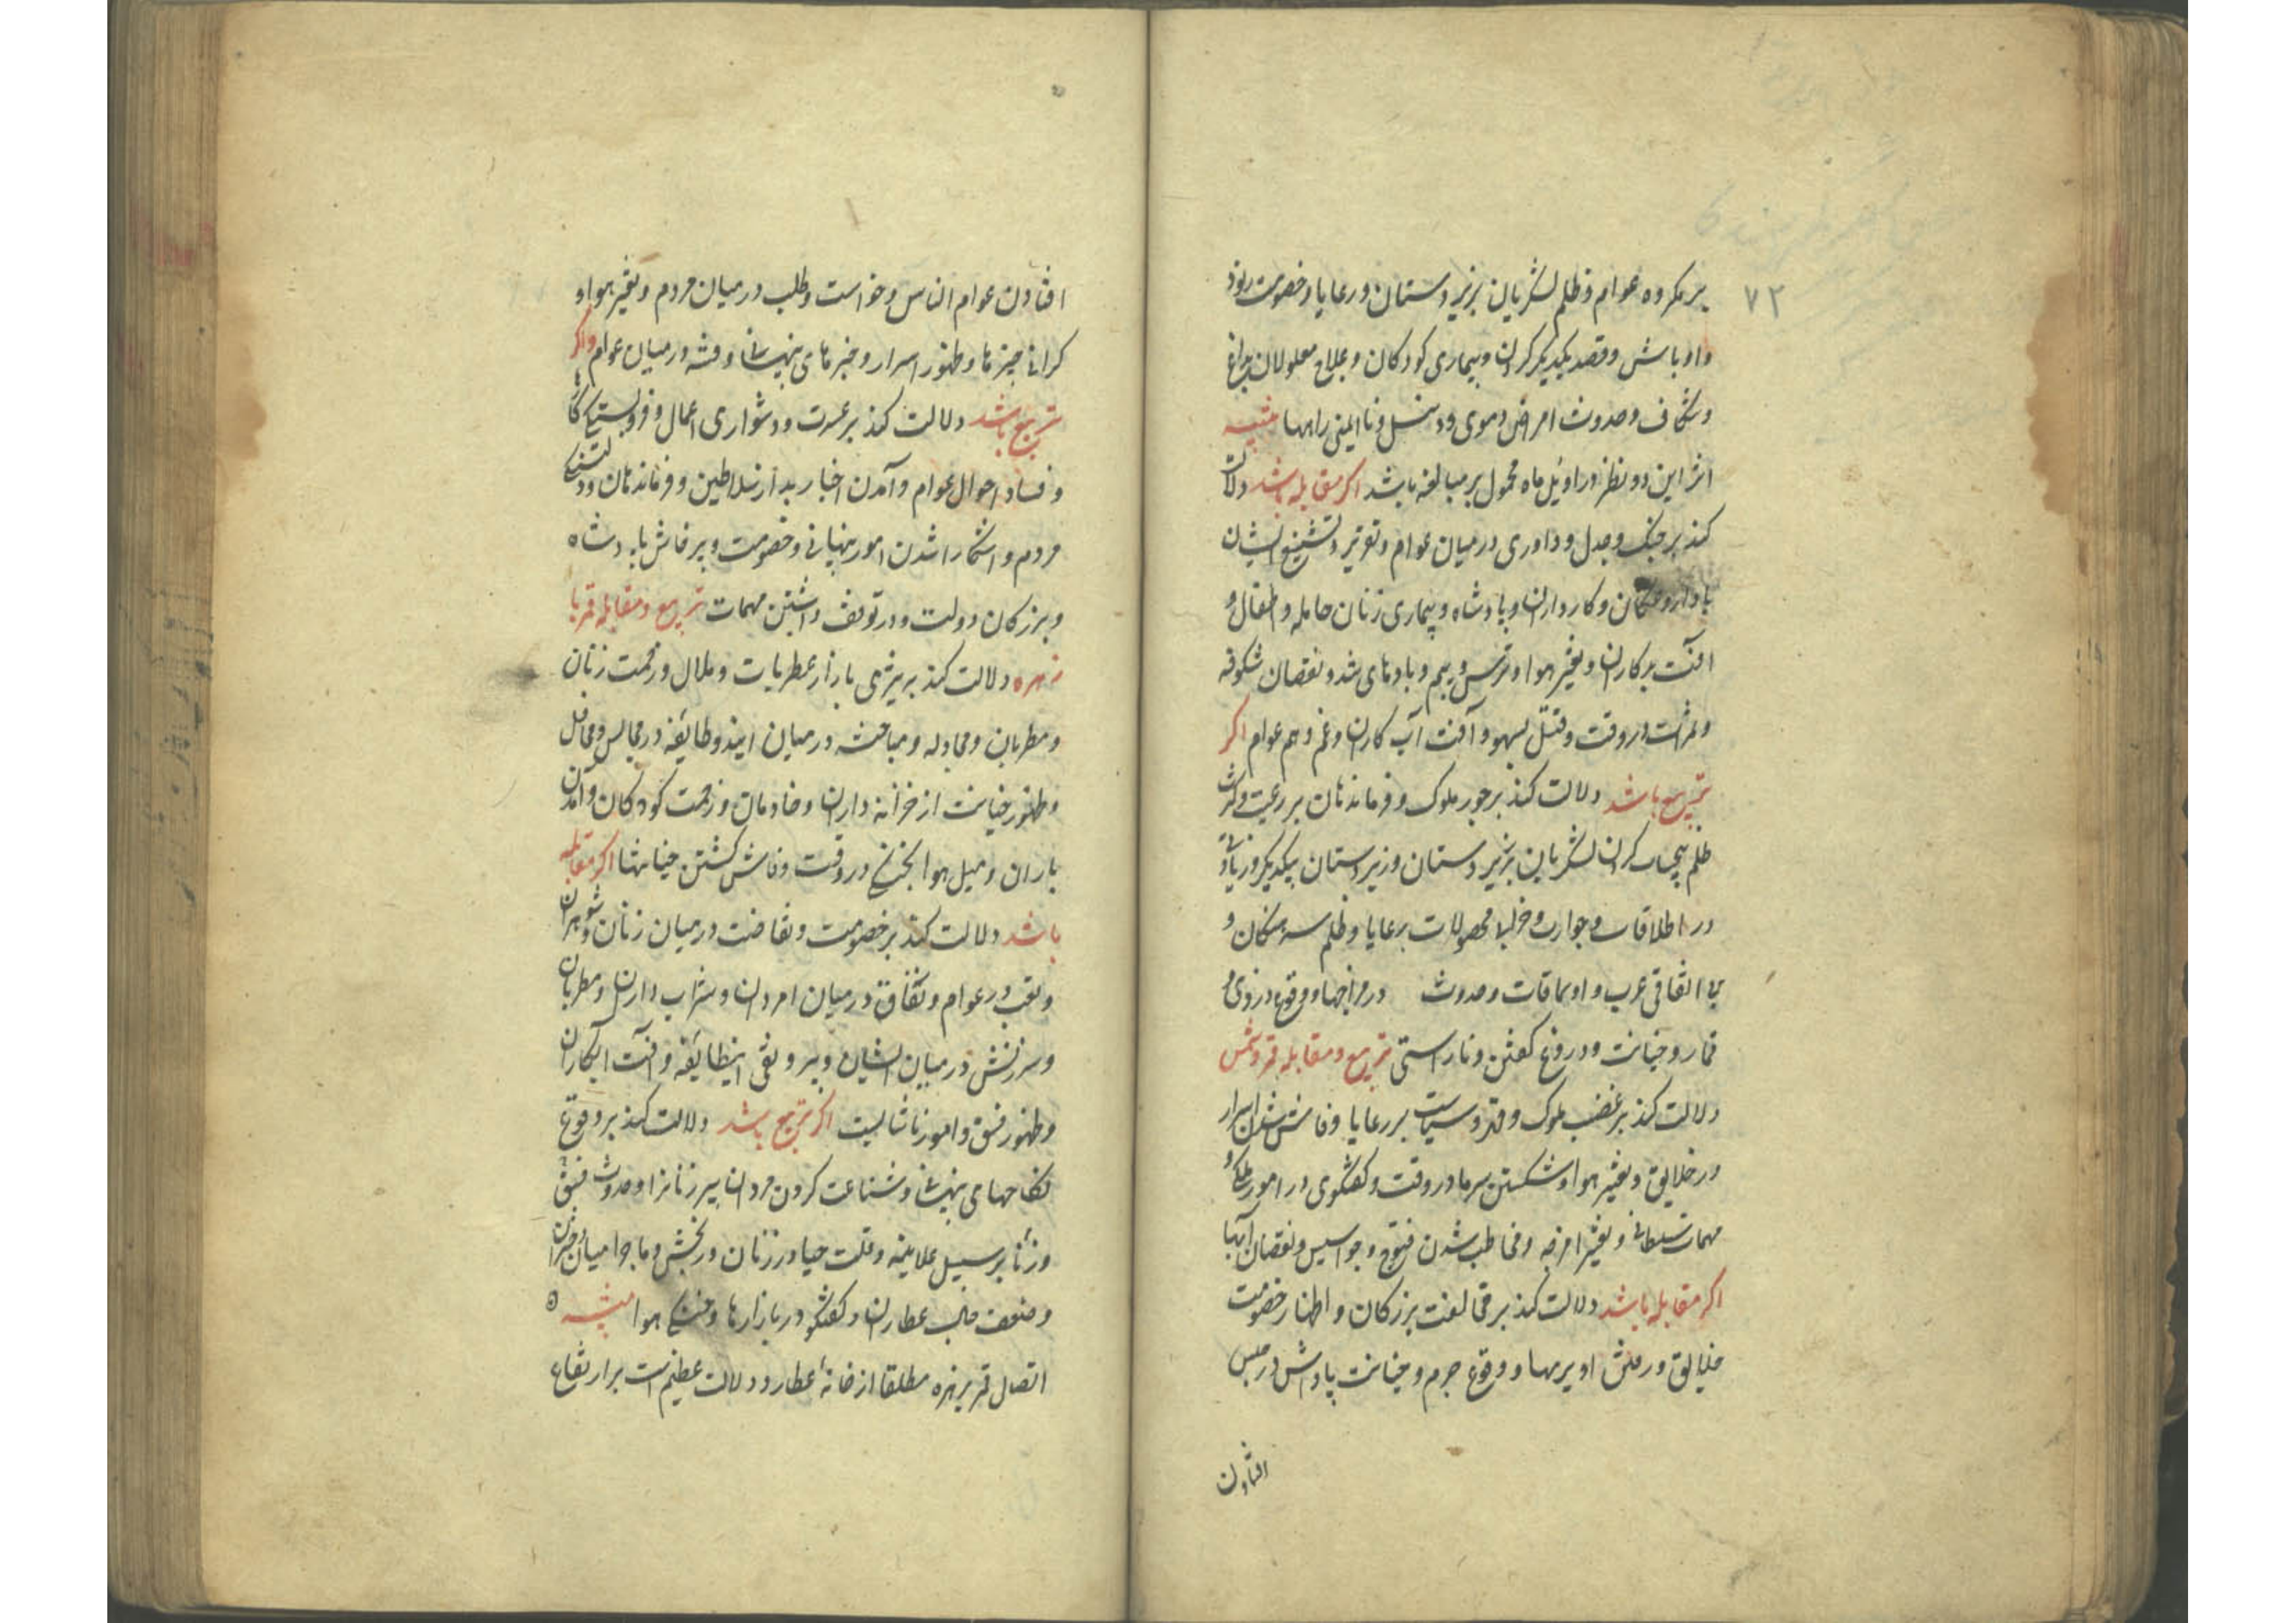 ۷۲
بر مکروه عوام و ظلم لشکریان بر زیردستان و رعایا و خصومت رنود
و اوباش و قصد یکدیگر کردن و بیماری کودکان و علاج معلولان
و شکاف و حدوث امراض دموی و نا ایمنی راهها تنبیه
اثر این دو نظر در اوئل ماه محمول بر مبالغه باشد اکر مقابله باشد دلالت
کند بر جنک و جدل و داوری در میان عوام و تعزیر و تشنیع ایشان
با داروغکان و کارداران و پادشاه و بیماری زنان حامله و اطفال و
آفت بر کاران و تغیر هوا و ترس و بیم و بادهای تند و نقصان شکوفه
و ثمرات در وقت و قتل بسهو و آفت آب کاران و غم و هم عوام اکر
تربیع باشد دلالت کند بر جور ملوک و فرماندهان بر رعیت و کثرت
ظلم بیحساب کردن لشکریان بزیردستان و زیردستان بیکدیکر و زیادتی
در اطلاقات و حوارت محصولات رعایا و ظلم سرهنکان و
بی اتفاقی عرب و اویماقات و حدوث در مزاجها و وقوع دزدی و
قمار و خیانت و دروغ کفتن و ناراستی تربیع و مقابله قمر و شمس
دلالت کند بر غضب ملوک و قهر و سیاست بر رعایا و فاش شدن اسرار
در خلایق و تغیر هوا و شکستن سرما در وقت و کفتکوی در امور ملک و
مهمات سلطانی و تغیر امزجه و مخاطب شدن فتوح و جواسیس و نقصان آبها
اکر مقابله باشد دلالت کند بر مخالفت بزرکان و اظهار خصومت
خلایق و وقوع جرم و خیانت پاداش در حبس
افتادن
افتادن عوام الناس و خواست و طلب در میان مردم و تغیر هوا و
کرانی چیزها و ظهور اسرار و خبرهای پنهانی و فتنه در میان عوام و اکر
تربیع باشد دلالت کند بر عسرت و دشواری اعمال و فروبستکی کارها
و فساد احوال عوام و آمدن اخبار بد از سلاطین و فرماندهان و دلتنکی
مردم و آشکارا شدن امور پنهانی و خصومت و پرخاش با پادشاه
و بزرکان دولت و در توقف داشتن مهمات تربیع و مقابله قمر با
زهره دلالت کند بر تیزی بازار عطریات و ملال و زحمت زنان
و مطربان و مجادله و مباحثه در میان ایندو طایفه در مجالس و محافل
و ظهور خیانت از خزانه داران و خادمان و زحمت کودکان و آمدن
باران و میل هوا بخنکی در وقت و فاش کشتن خیانتها اکر مقابله
باشد دلالت کند بر خصومت و نقاضت در میان زنان و شوهران
و تعب در عوام و نفاق در میان امردان و شراب داران و مطربان
و سرزنش در میان ایشان و بیرونقی اینطایفه و آفت آبکاران
و ظهور فسق و امور ناشایست اکر تربیع باشد دلالت کند بر وقوع
نکاحهای پنهانی و شناعت کردن مردان پیر زنانرا و حدوث فسق
و زنا بر سبیل علانیه و قلت حیا در زنان و رنجش و ماجرا میان
و ضعف حال عطاران و کفتکو در بازارها و خنکی هوا تنبیه
اتصال قمر بزهره مطلقا از خانه عطارد دلالت عظیم است بر ارتفاع